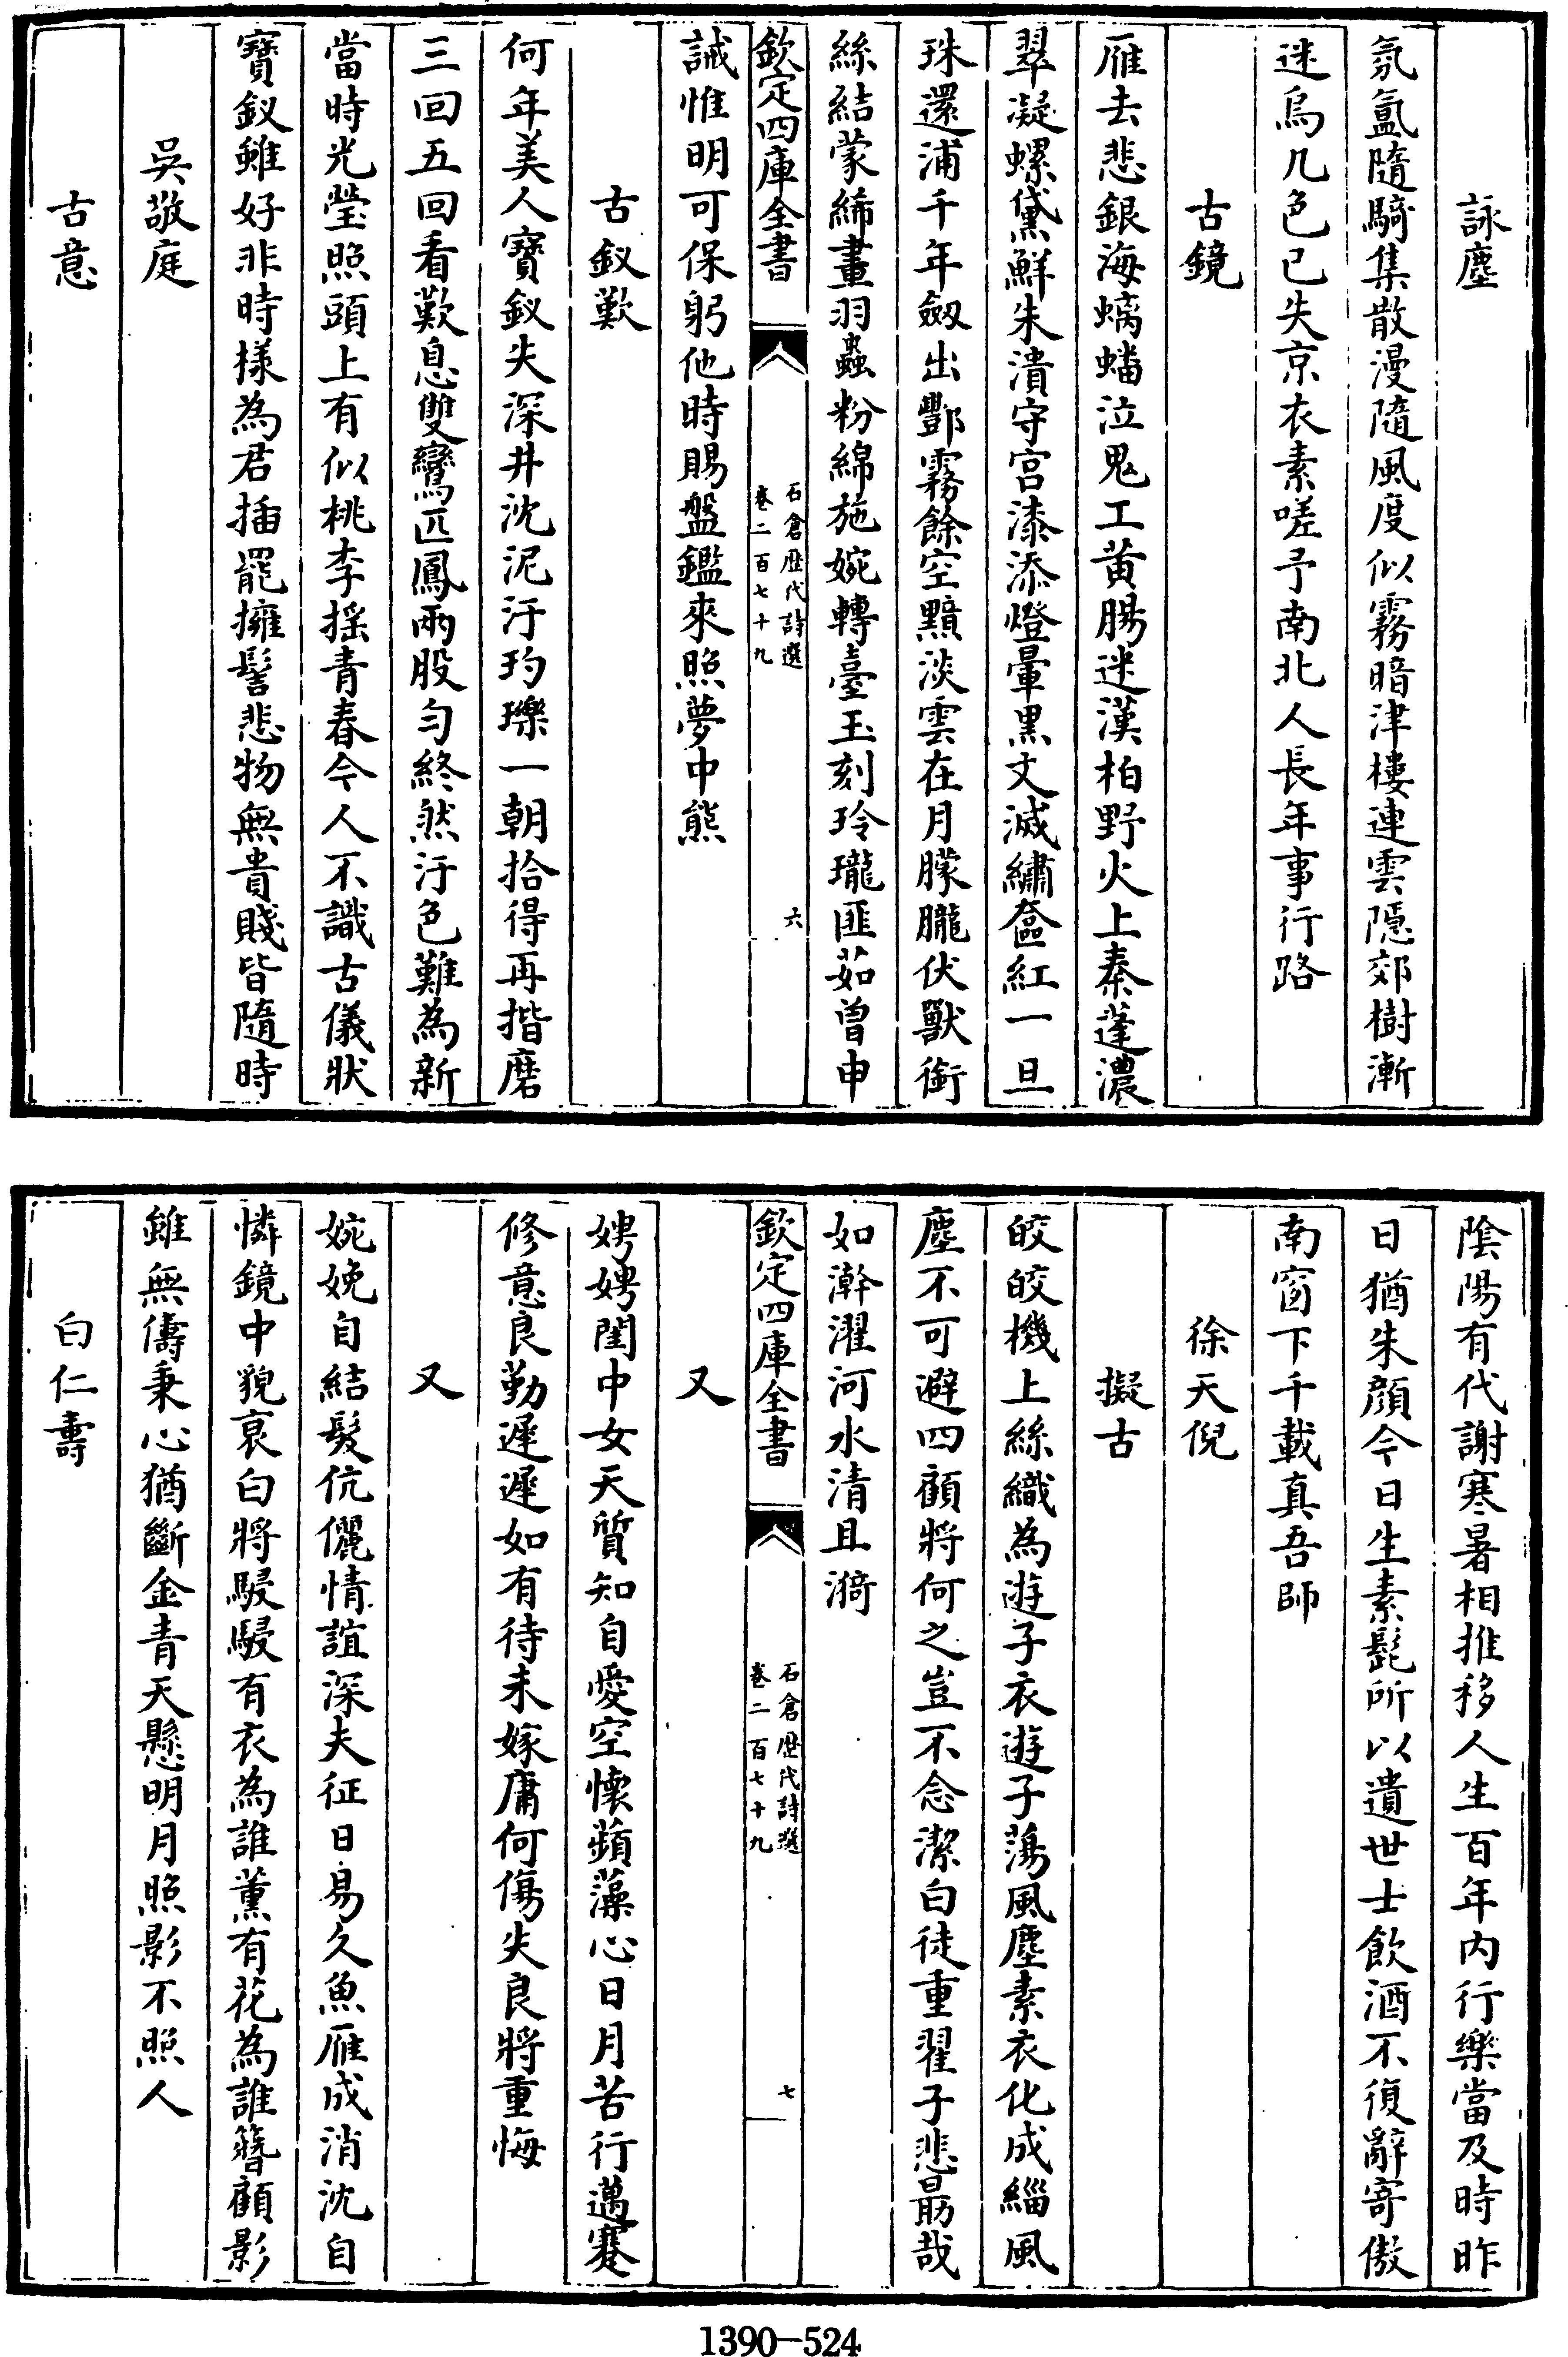 詠塵
氛氲隨騎集散漫隨風度似霧暗津樓連雲隱郊樹漸
迷烏几色已失京衣素嗟予南北人長年事行路
古鏡
雁去悲銀海螭蟠泣鬼工黃腸迷漢柏野火上秦蓬濃
翠凝螺黛鮮朱潰守宮漆添燈暈黑文滅繡奩紅一旦
珠還浦千年劔出酆霧餘空黯淡雲在月朦朧伏獸銜
絲結蒙絺畫羽蟲粉綿施婉轉臺玉刻玲瓏匪茹曽申
欽定四庫全書
石倉歴代詩選
卷二百七十九
六
誠惟明可保躬他時賜盤鑑來照夢中熊
古釵歎
何年美人寶釵失深井沈泥汙玓瓅一朝拾得再揩磨
三回五回看歎息雙鸞匹鳳兩股勻終然汙色難為新
當時光瑩照頭上有似桃李揺青春今人不識古儀狀
寶釵雖好非時様為君插罷擁髻悲物無貴賤皆隨時
吳敬庭
古意
隂陽有代謝寒暑相推移人生百年内行樂當及時昨
日猶朱顔今日生素髭所以遺世士飲酒不復辭寄傲
南窗下千載真吾師
徐天倪
擬古
皎皎機上絲織為遊子衣遊子蕩風塵素衣化成緇風
塵不可避四顧將何之豈不念潔白徒重翟子悲朂哉
如澣濯河水清且漪
欽定四庫全書
石倉歴代詩選
卷二百七十九
七
又
娉娉閨中女天質知自愛空懷蘋藻心日月苦行邁蹇
修意良勤遲遲如有待未嫁庸何傷失良將重悔
又
婉娩自結髮伉儷情誼深夫征日易久魚雁成消沈自
憐鏡中貌哀白將駸駸有衣為誰薰有花為誰簪顧影
雖無儔秉心猶斷金青天懸明月照影不照人
白仁壽
1390-524